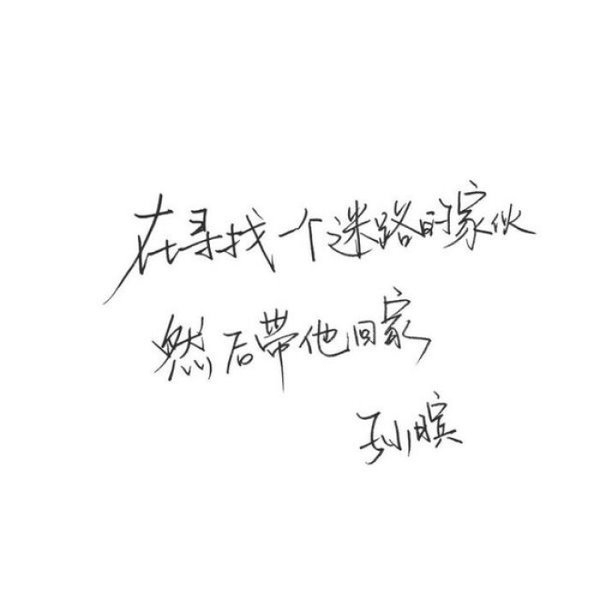 在寻找一个迷路的家伙
然后带他回家
孙暝